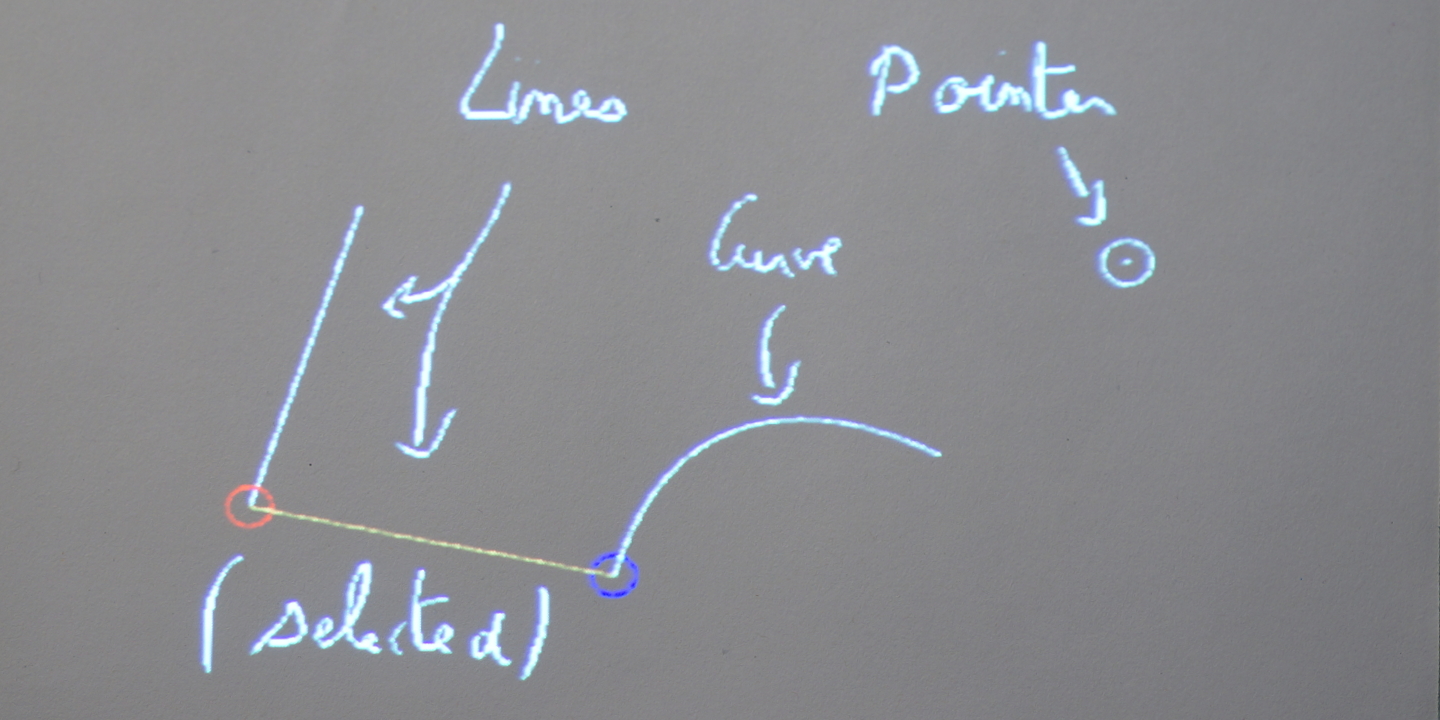 Lines
Pointer
Curve
(selected)